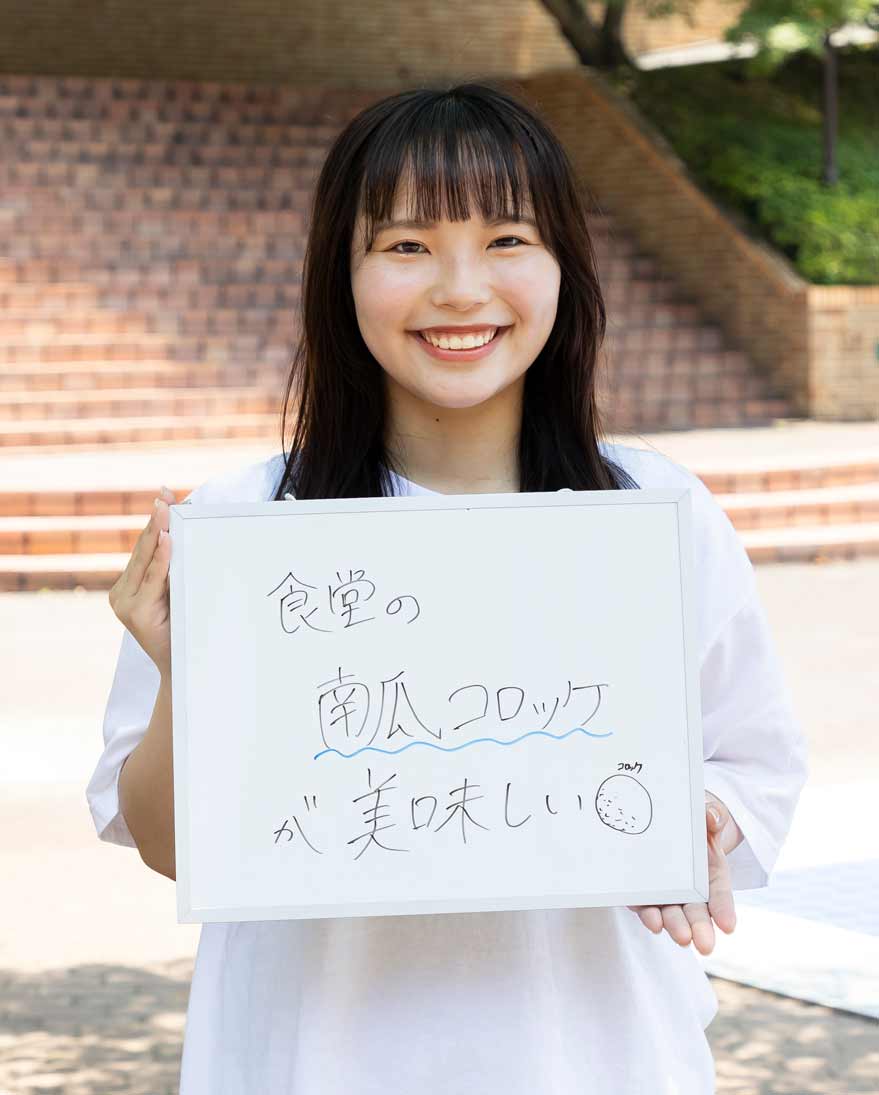 食堂の
南瓜コロッケ
が美味しい
コロッケ